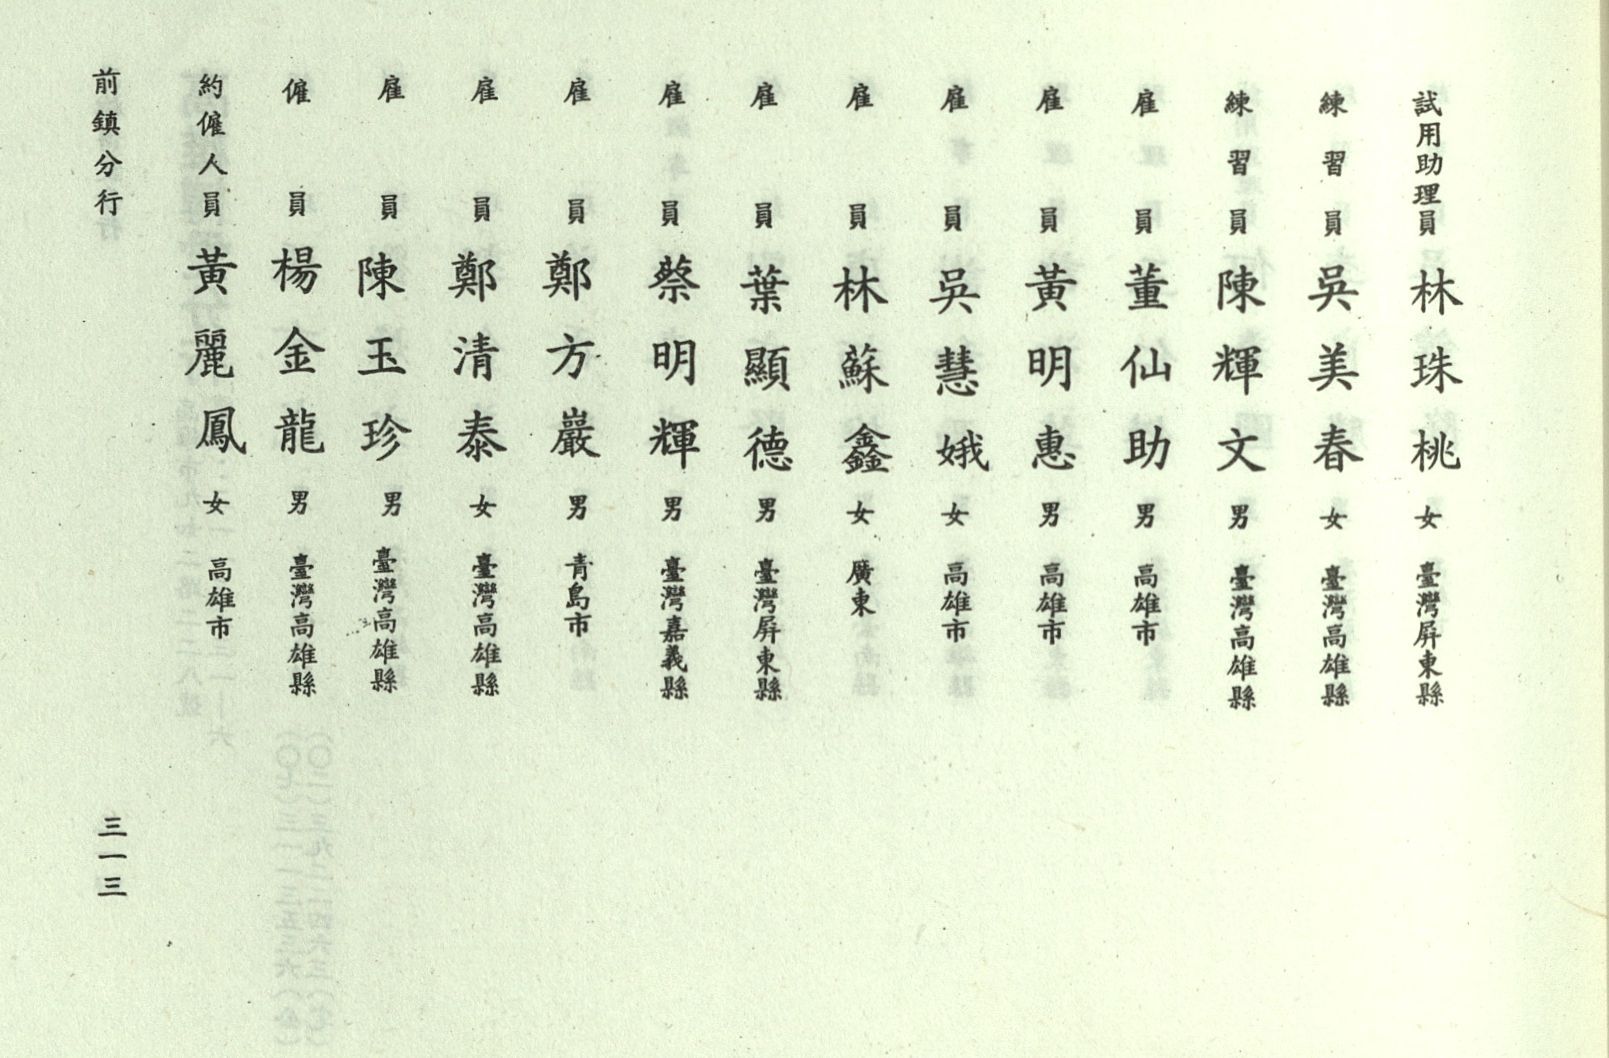 試用助理員 林珠桃 女 臺灣屏東縣
練習員 吳美春 女 臺灣高雄縣
練習員 陳輝文 男 臺灣高雄縣
雇員 董仙助 男 高雄市
雇員 黃明惠 男 高雄市
雇員 吳慧娥 女 高雄市
雇員 林蘇鑫 女 廣東
雇員 葉顯德 男 臺灣屏東縣
雇員 蔡明輝 男 臺灣嘉義縣
雇員 鄭方巖 男 青島市
雇員 鄭清泰 女 臺灣高雄縣
雇員 陳玉珍 男 臺灣高雄縣
僱員 楊金龍 男 臺灣高雄縣
約僱人員 黃麗鳳 女 高雄市
前鎮分行 三一三